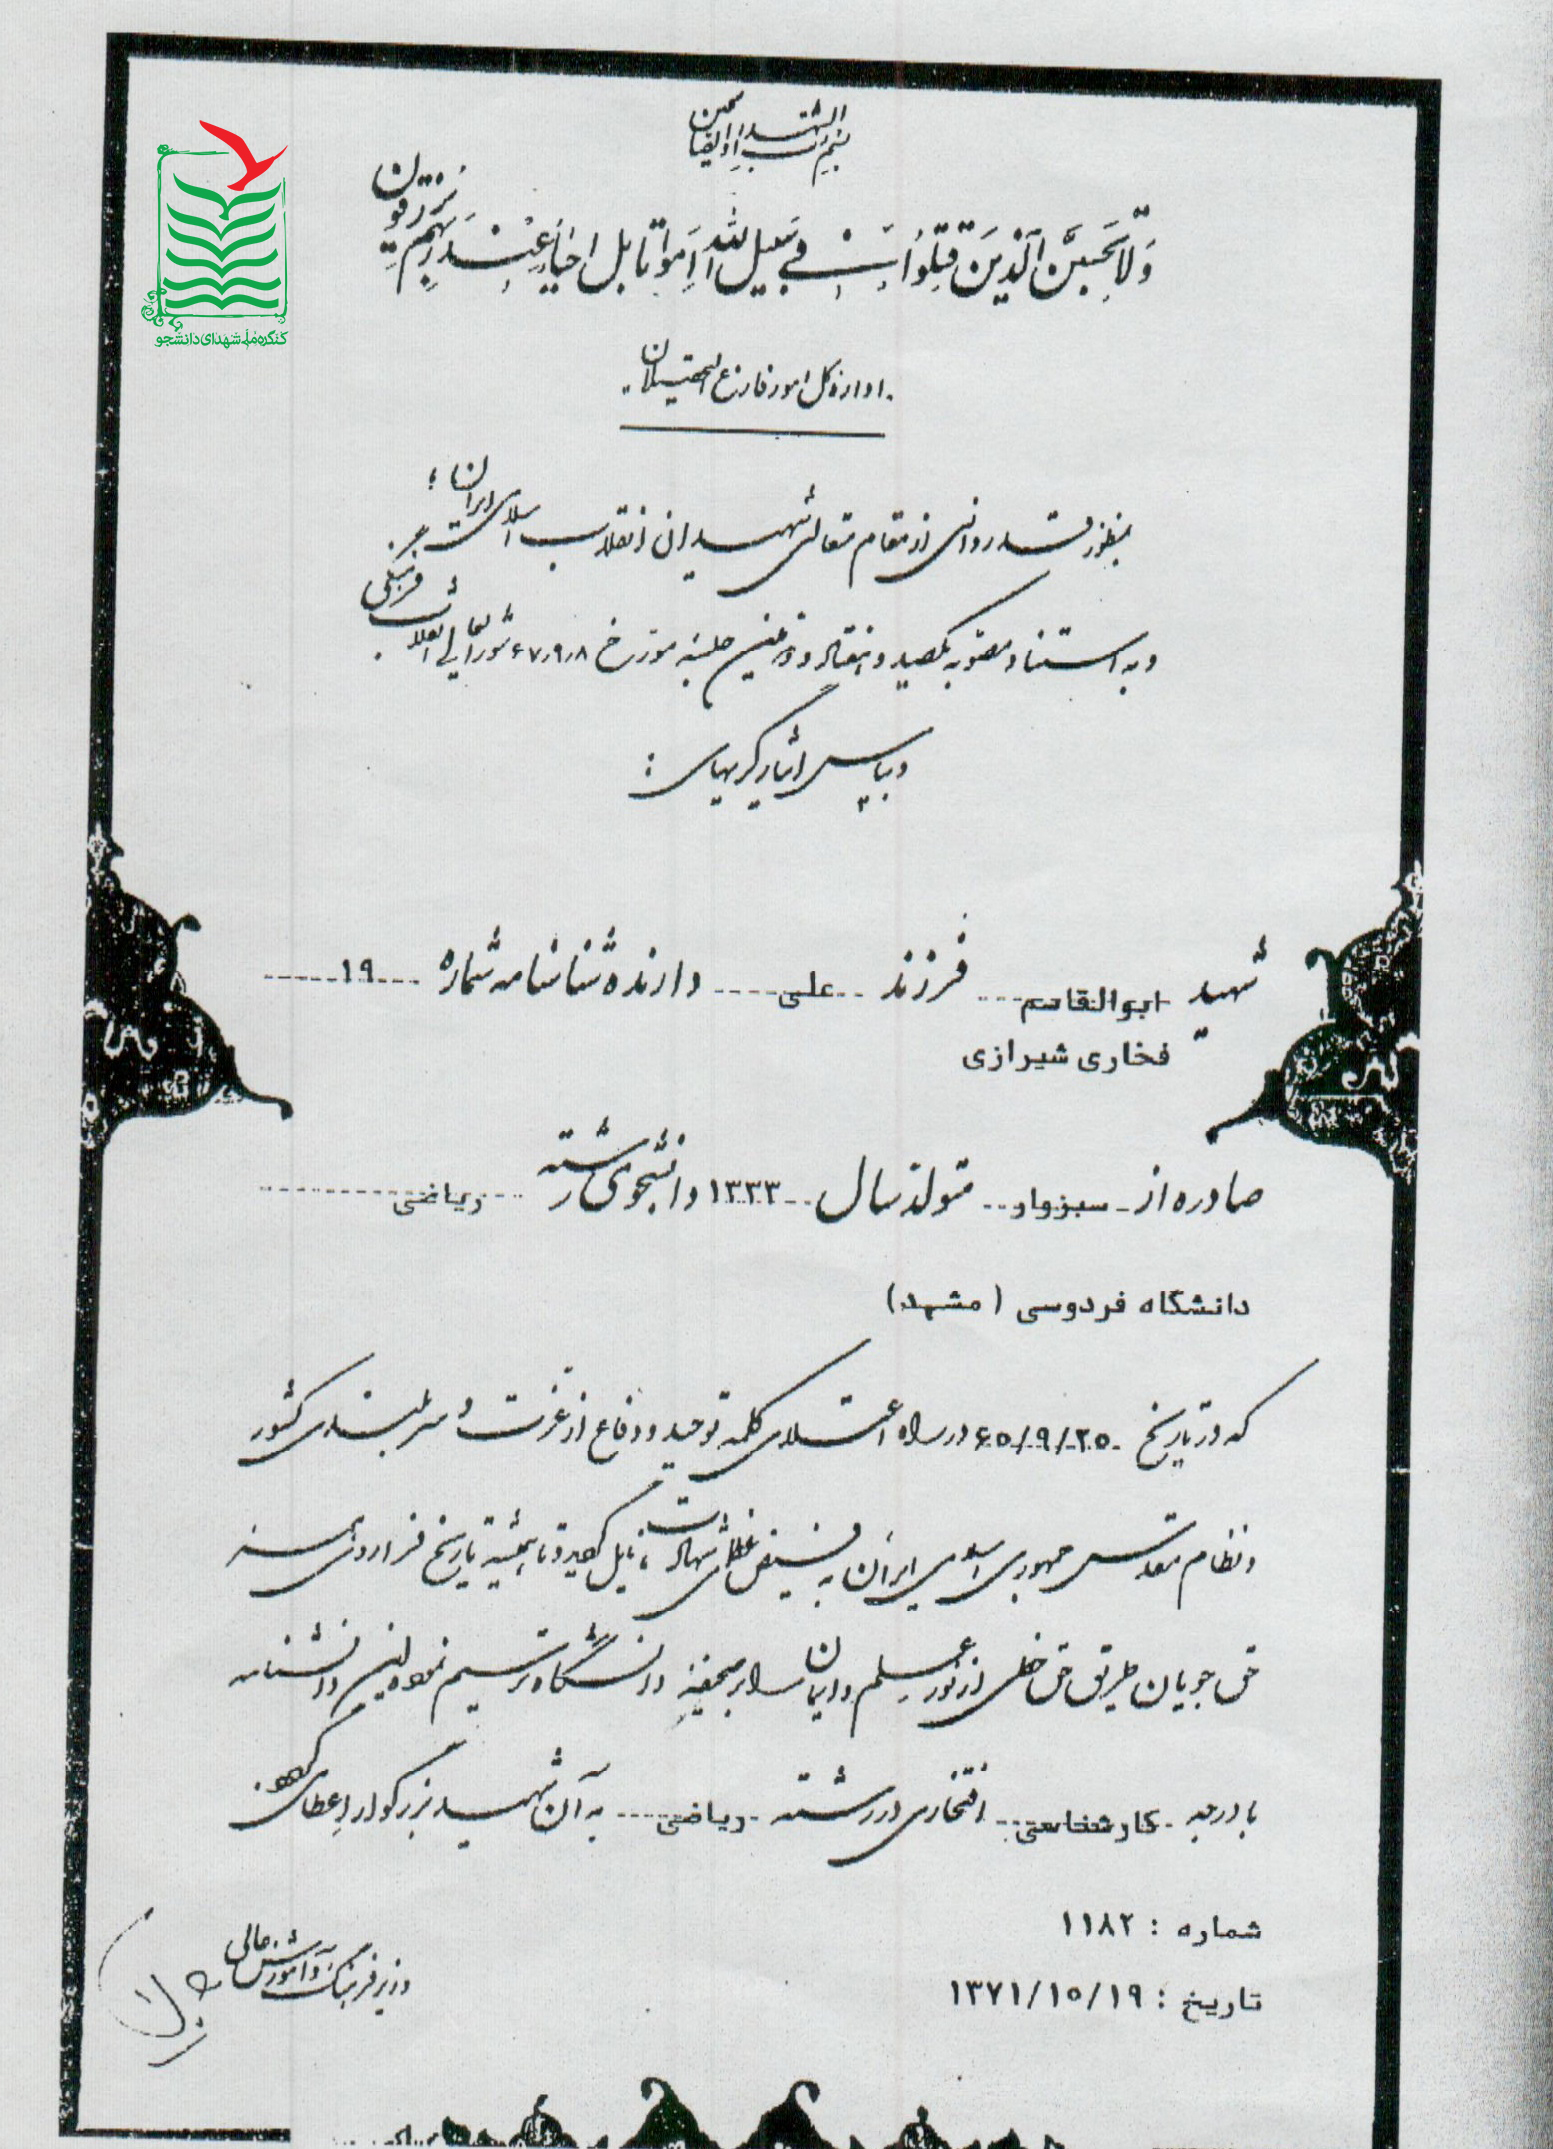 بسم رب الشهداء والصدیقین
وَلاتَحسَبَنَّ الَّذینَ قُتِلوُا فی سَبیلِ الله اَمواتا بل اَحیاءٌ عِندَ رَبِّهِم یُرزَقُون
کنگره ملی شهدای دانشجو
اداره کل امور فارغ التحصیلان
بمنظور قدردانی از مقام متعالی شهیدان انقلاب اسلامی ایران؛
و به استناد مصوبه یکصد و هفتاد و دومین جلسه مورخ ۶۷٫۹٫۸ شورایعالی انقلاب فرهنگی
و بپاس ایثارگریهای :
شهید ابوالقاسم فرزند علی دارنده شناسنامه شماره ۱۹
فخاری شیرازی
صادره از سبزوار متولد سال ۱۳۳۳ دانشجوی رشته ریاضی
دانشگاه فردوسی (مشهد)
که در تاریخ ۶۵/۹/۲۵ در راه اعتلای کلمه توحید و دفاع از عزت و سربلندی کشور
و نظام مقدس جمهوری اسلامی ایران به فیض عظمای شهادت نایل گردید و تا همیشه تاریخ فراروی همه
حق جویان طریق حق خطی از نور علم و ایمان را بر صحیفه دانشگاه ترسیم نمود این دانشنامه
با درجه کارشناسی افتخاری در رشته ریاضی به آن شهید بزرگوار اعطا می گردد.
شماره : ۱۱۸۲
تاریخ : ۱۳۷۱/۱۰/۱۹
وزیر فرهنگ و آموزش عالی